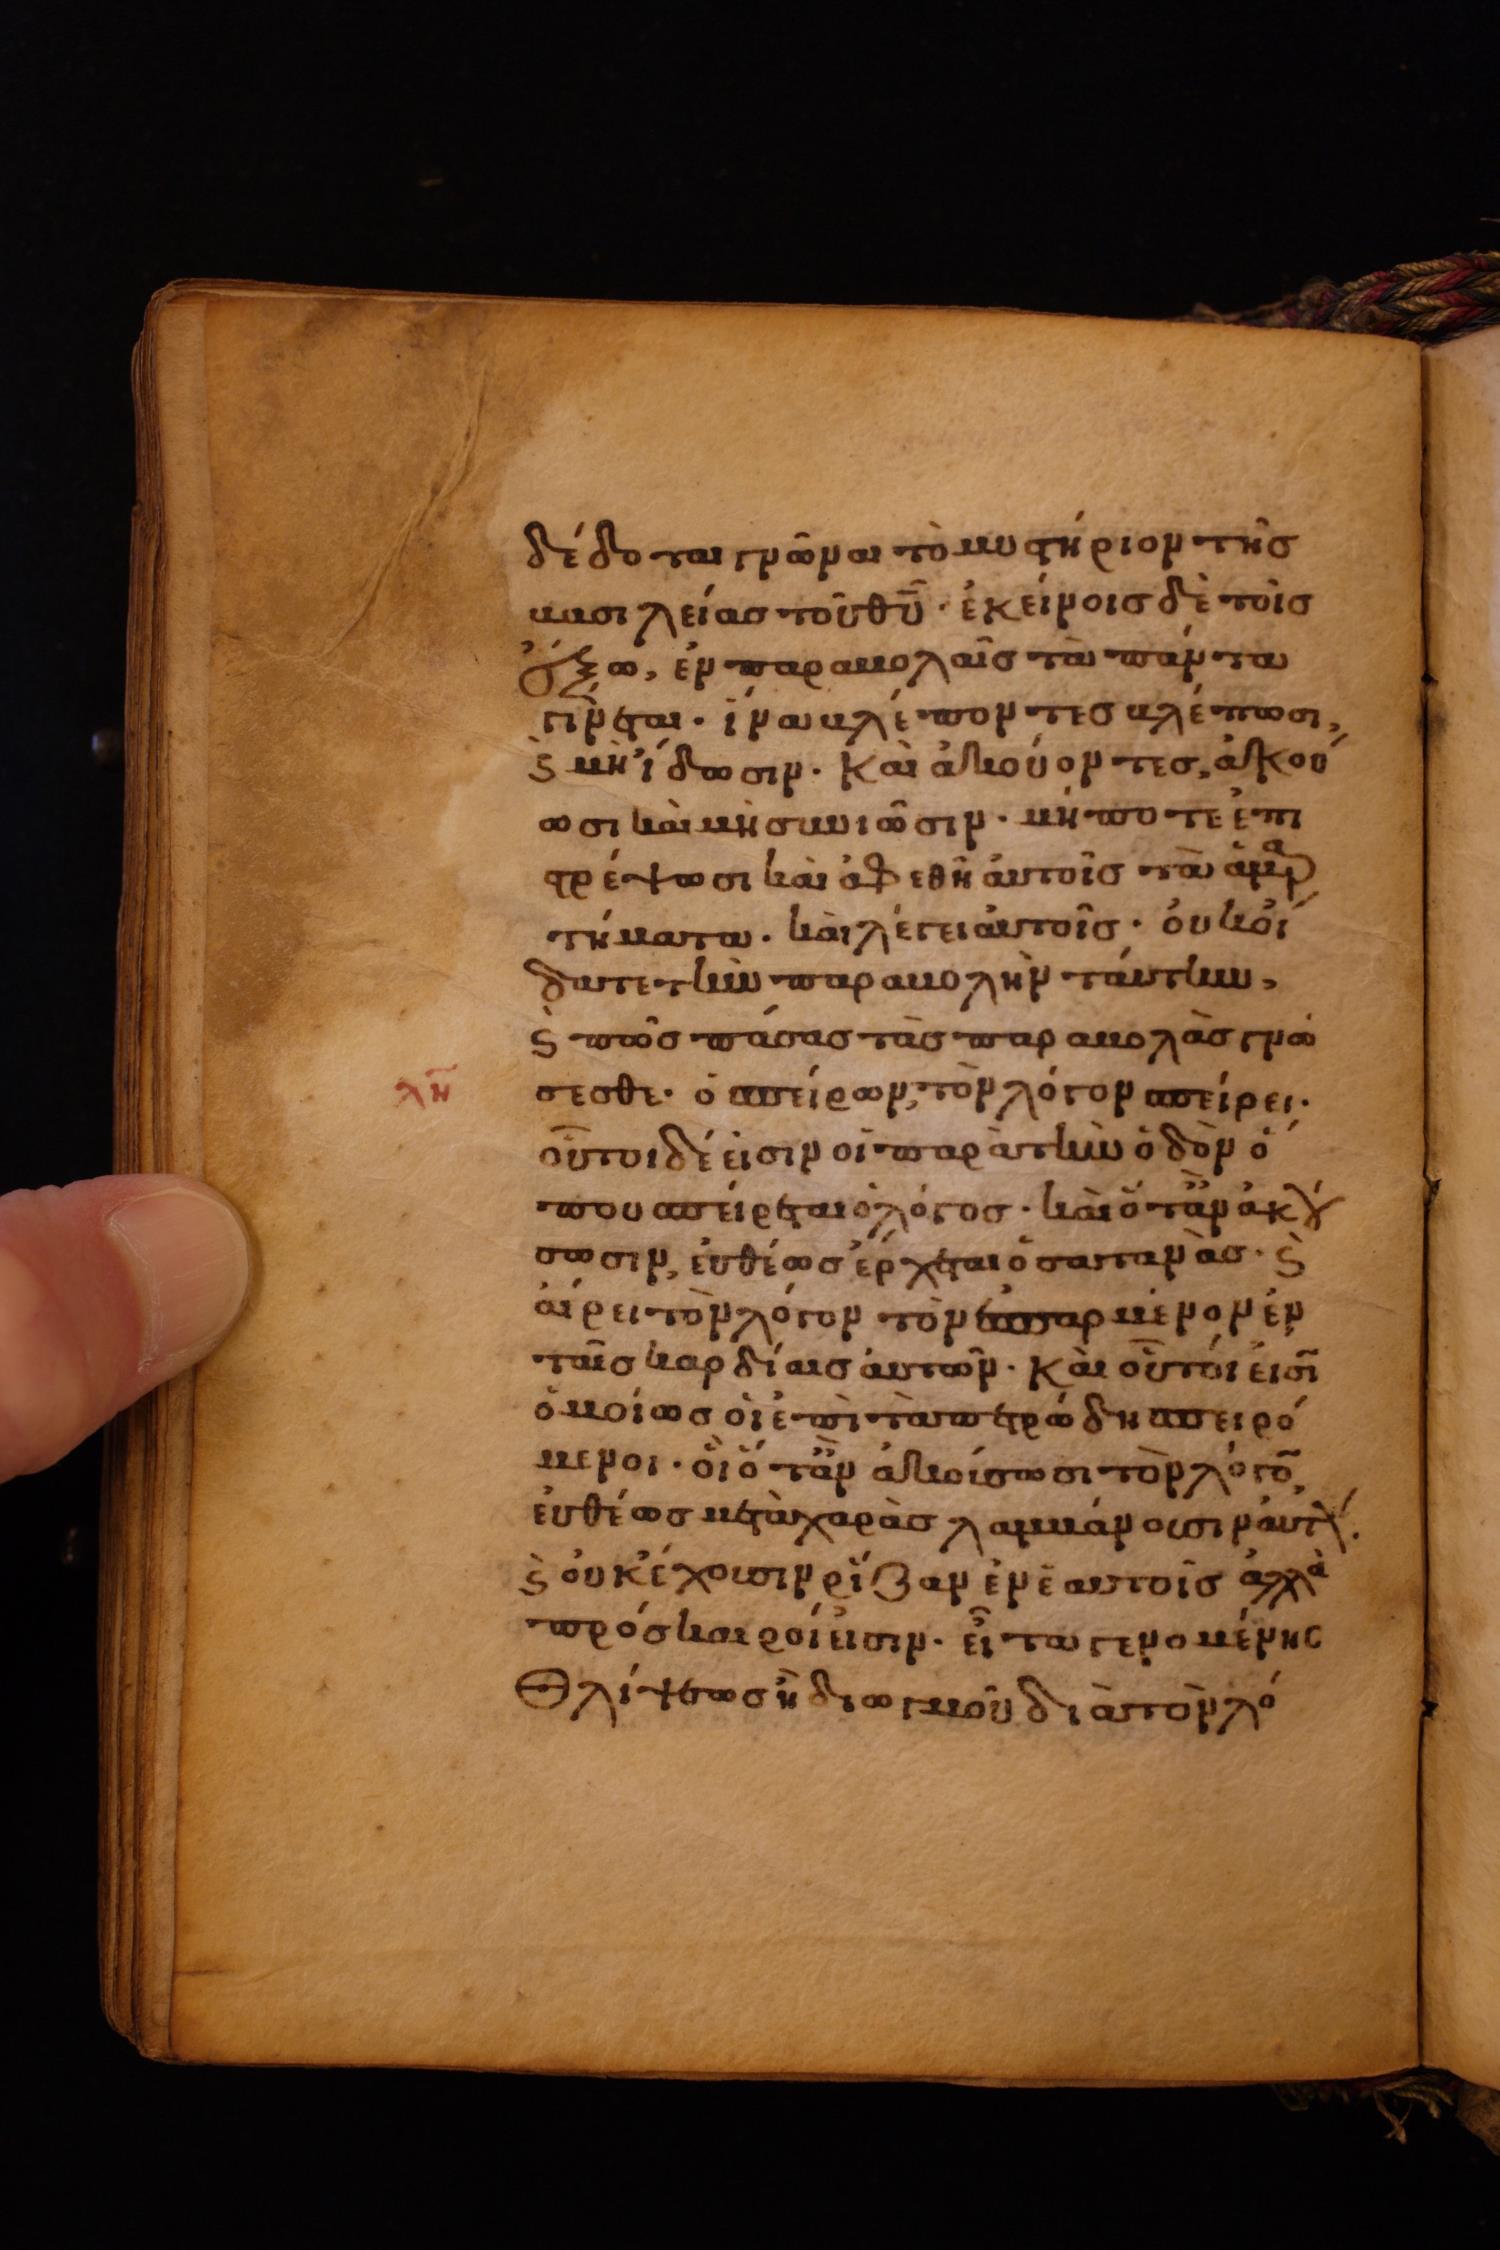 δέδοται γνῶναι τὸ μυστήριον τῆς
βασιλείας τοῦ θῦ· ἐκείνοις δὲ τοῖς
ἔξω, ἐν παραβολαῖς τὰ πάντα
γίνεται· ἵνα βλέποντες βλέπωσι,
ϛ̀ μὴ ἴδωσιν· καὶ ἀκούοντες, ἀκού
ωσι καὶ μὴ συνιῶσιν· μήποτε ἐπι
στρέψωσι καὶ ἀφεθῆ αὐτοῖς τὰ ἁμαρ
τήματα· καὶ λέγει αὐτοῖς· οὐκ οἴ
δατε τὴν παραβολὴν ταύτην,
ϛ̀ πῶς πάσας τὰς παραβολὰς γνώ
σεσθε· ὁ σπείρων, τὸν λόγον σπείρει·
λη
οὗτοι δέ εἰσιν οἱ παρὰ τὴν ὁδὸν ὅ
που σπείρεται ὁ λόγος· καὶ ὅτἂν ἀκού
σωσιν, εὐθέως ἔρχεται ὁ σατανὰς· ϛ̀
αἴρει τὸν λόγον τὸν ἐσπαρμένον ἐν
ταῖς καρδίαις αὐτῶν· καὶ οὗτοί εἰσῑ
ὁμοίως οἱ ἐπὶ τὰ πετρώδη σπειρό
μενοι· οἳ ὅτἂν ἀκούσωσι τὸν λόγο̄,
εὐθέως μετὰ χαρὰς λαμβάνουσιν αὐτόν.
ϛ̀ οὐκ ἔχουσιν ρίζαν ἐν ἑαυτοῖς ἀλλὰ
πρόσκαιροί εἰσιν· εἶτα γενομένης
θλίψεως ἢ διωγμοῦ διὰ τὸν λό